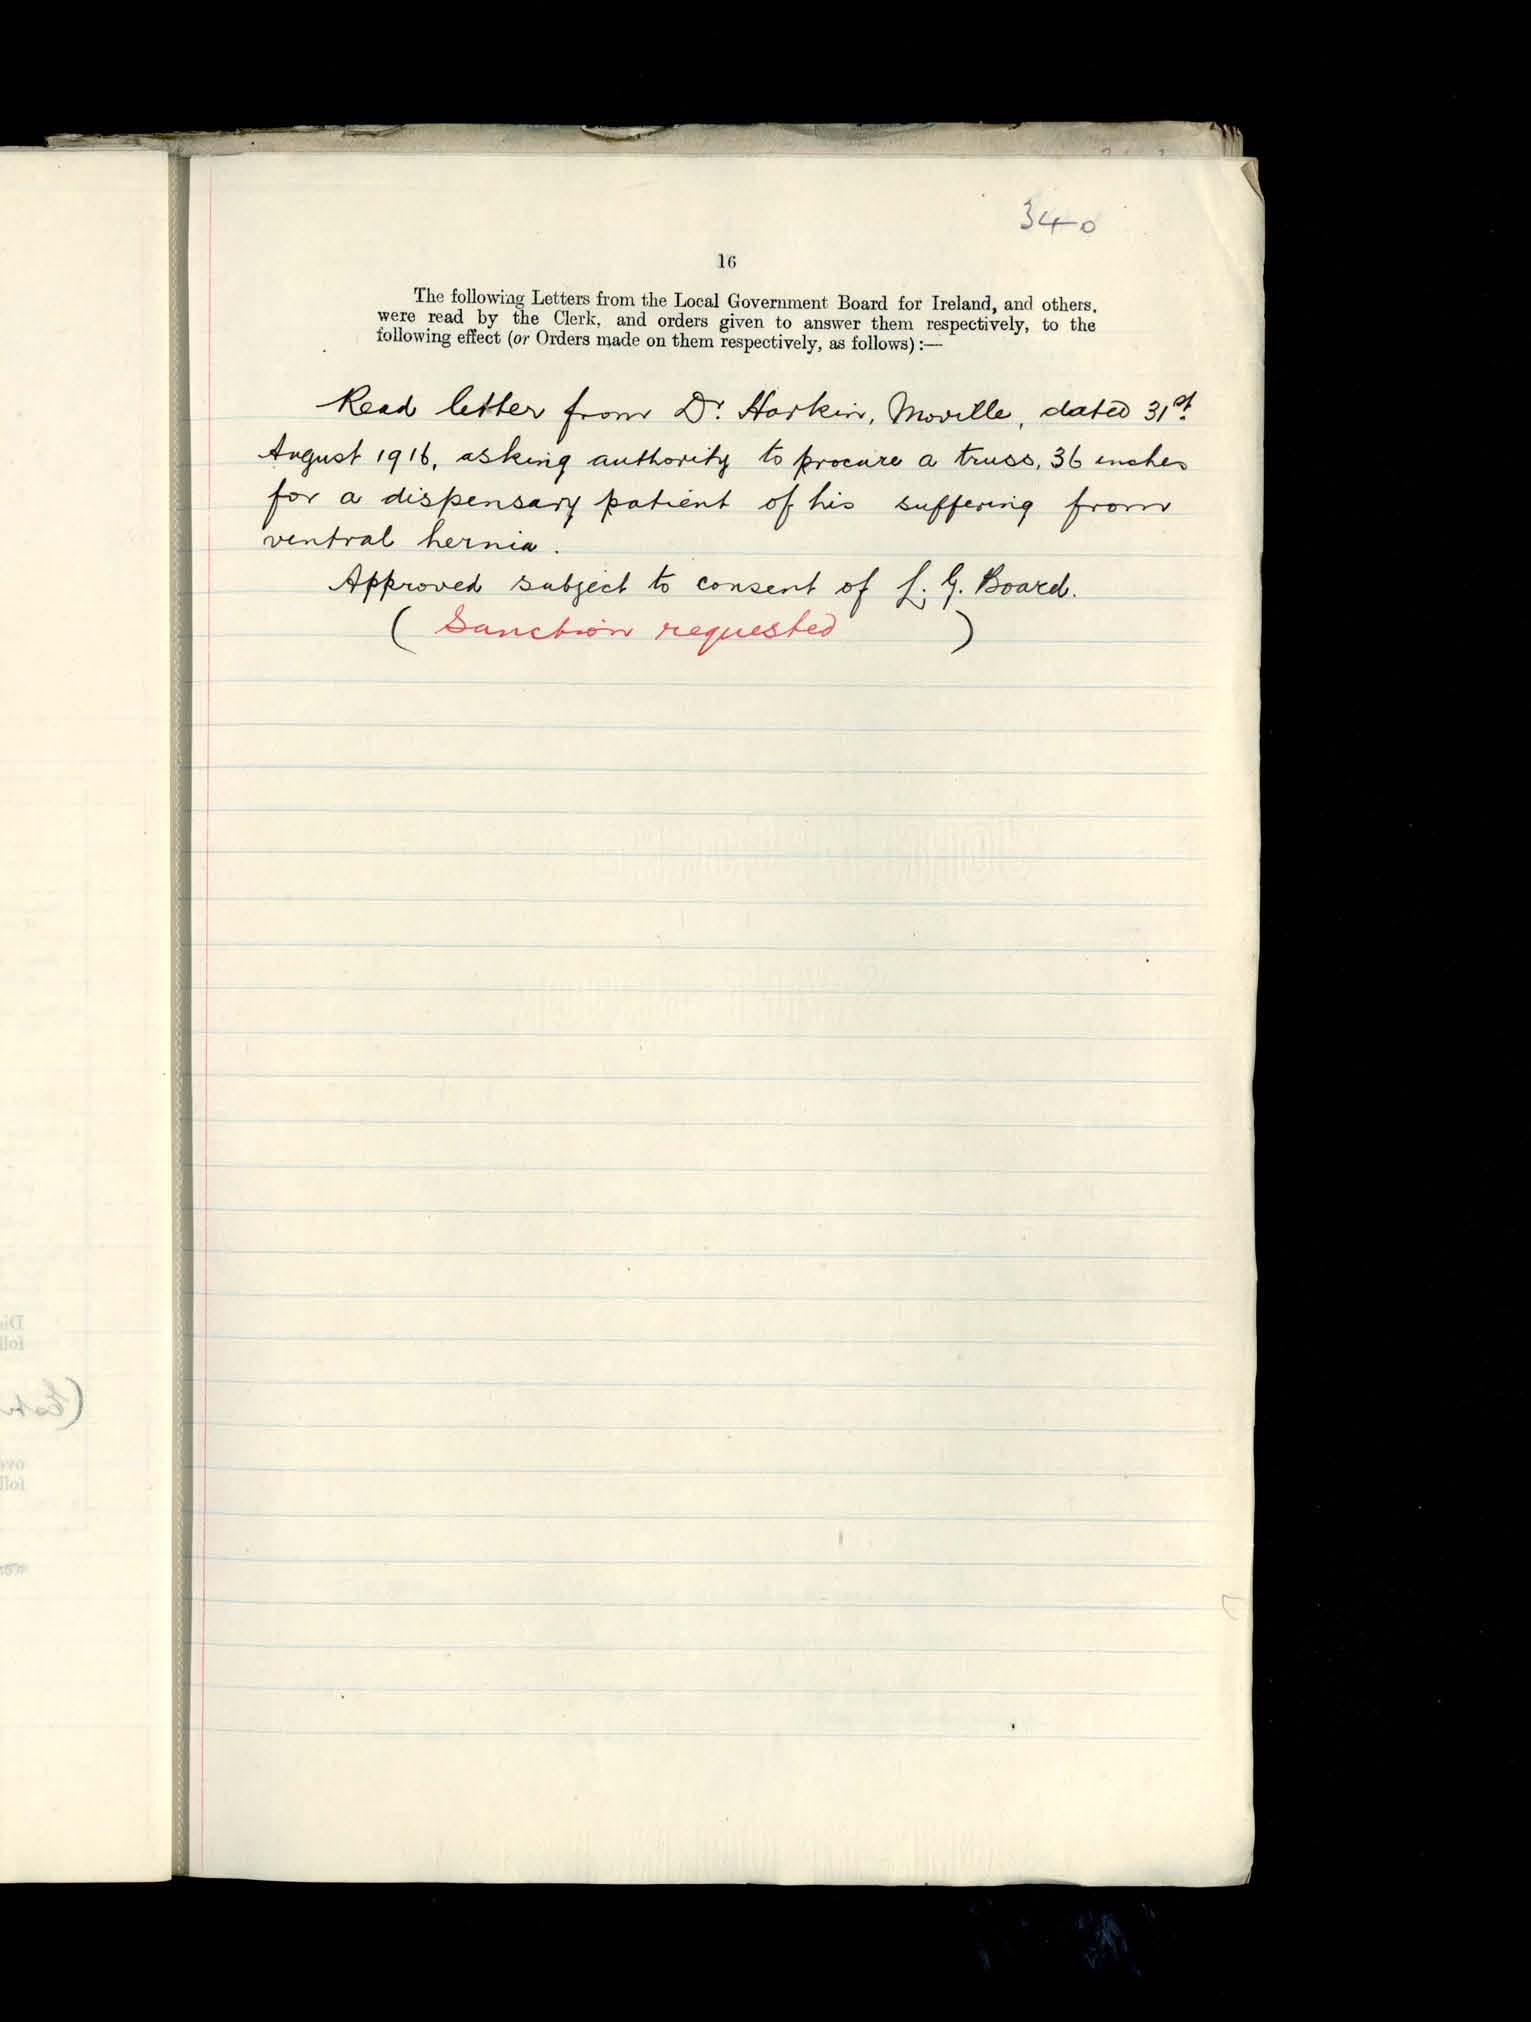 340
16
The following Letters from the Local Government Board for Ireland, and others,
were read by the Clerk, and orders given to answer them respectively, to the
following effect (or Orders made on them respectively, as follows) :—
Read letter from Dr. Harkin, Moville, dated 31st.
August 1916, asking authority to procure a truss, 36 inches
for a dispensary patient of his suffering from
ventral hernia.
Approved subject to consent of L. G. Board.
( Sanction requested )